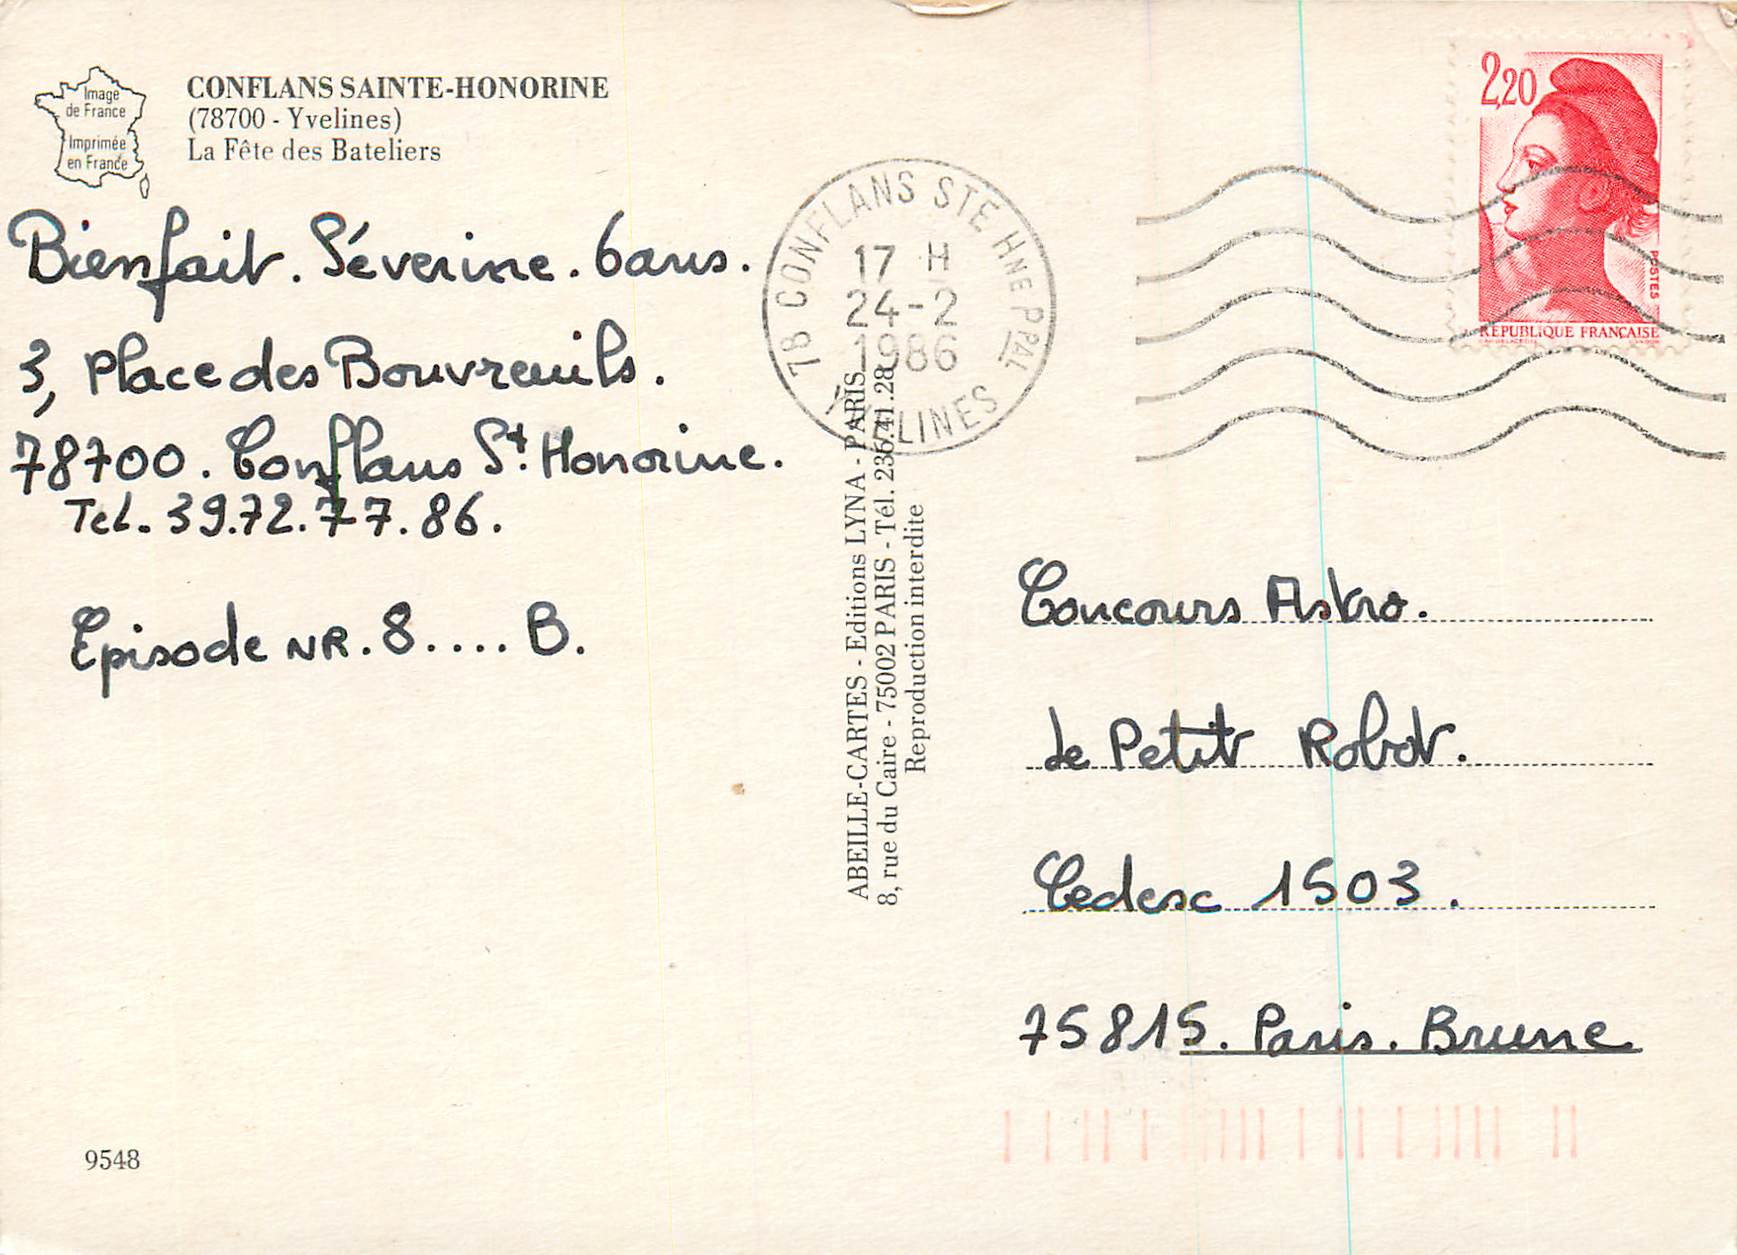 Image
de France
Imprimée
en France
CONFLANS SAINTE-HONORINE
(78700 - Yvelines)
La Fête des Bateliers
Bienfait. Séverine. 6ans.
3, Place des Bouvreuils.
78700. Conflans St. Honorine.
Tel. 39.72.77.86.
Episode NR. 8.... B.
9548
78 CONFLANS STE HNE PPAL
17 H
24-2
1986
YVELINES
ABEILLE-CARTES - Editions LYNA - PARIS
8, rue du Caire - 75002 PARIS - Tél. 236.41.28
Reproduction interdite
2,20
POSTES
REPUBLIQUE FRANÇAISE
Concours Astro.
le Petit Robot.
Cedesc 1503.
75815. Paris. Brune